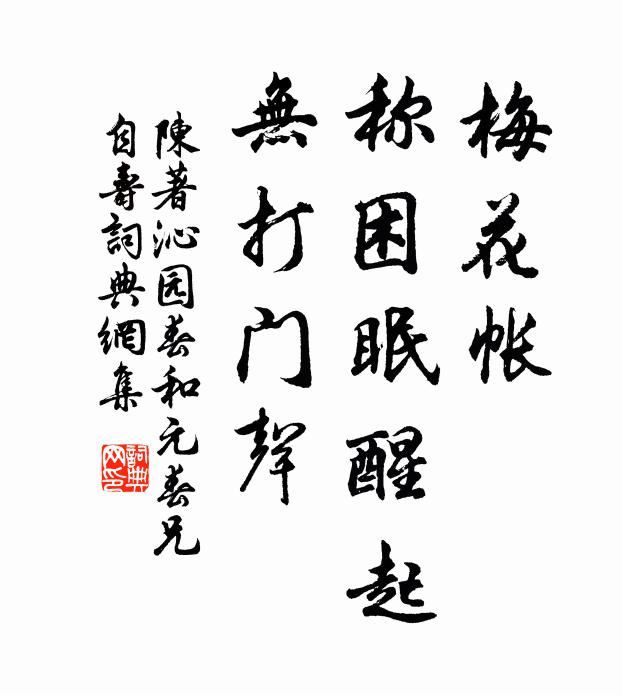 梅花帐
称困眠醒起
無打门聲
陳著沁园春和元春兄
自壽詞典網集
詞典网印